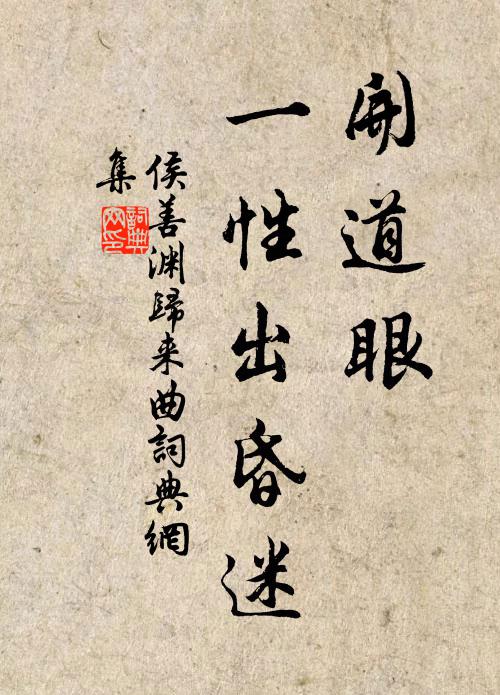 開道眼
一性出昏迷
侯善渊歸来曲詞典網
集
詞典網印